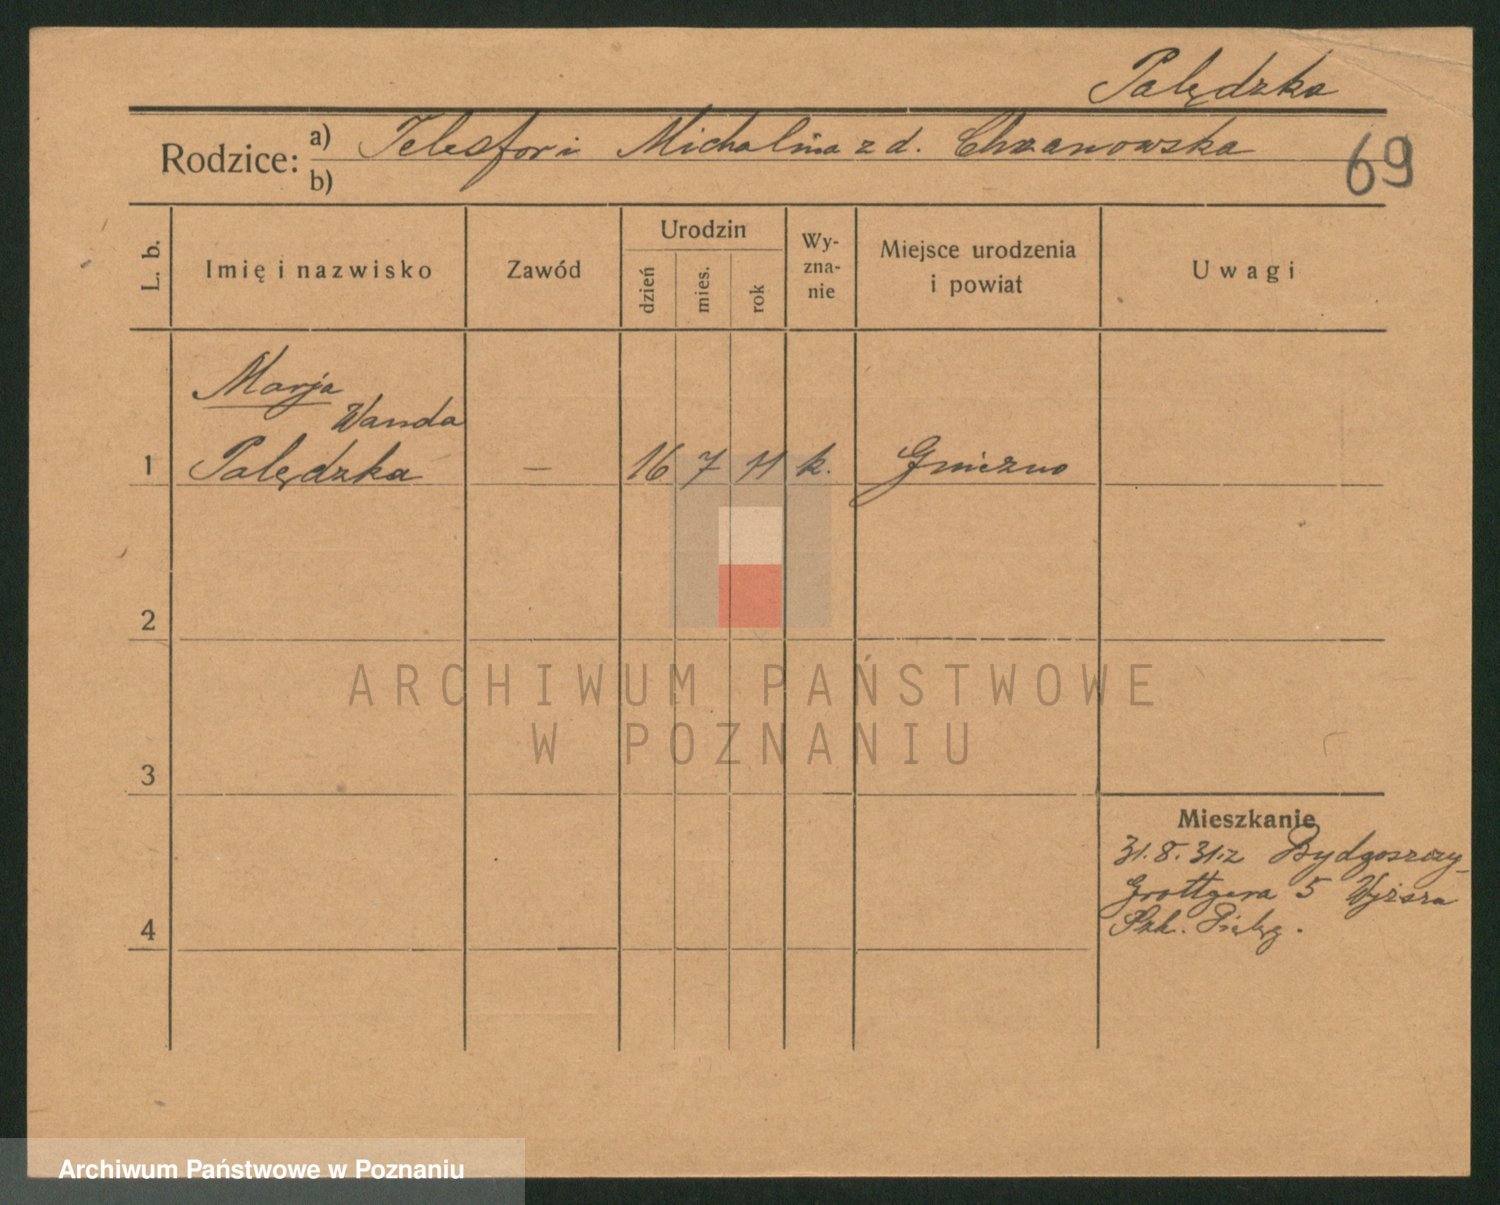 Palędzka
Rodzice: a) Telesfor i Michalina z d. Chrzanowska
b)
69
L. b.
Imię i nazwisko
Zawód
Urodzin
dzień
mies.
rok
Wy-
zna-
nie
Miejsce urodzenia
i powiat
Uwagi
Marja
Wanda
1 Palędzka — 16 7 11 k. Gniezno
2
3
4
Mieszkanie
31.8.31. z Bydgoszczy
Grottgera 5 Wyższa
Szk. Pielęg.
ARCHIWUM PAŃSTWOWE
W POZNANIU
Archiwum Państwowe w Poznaniu